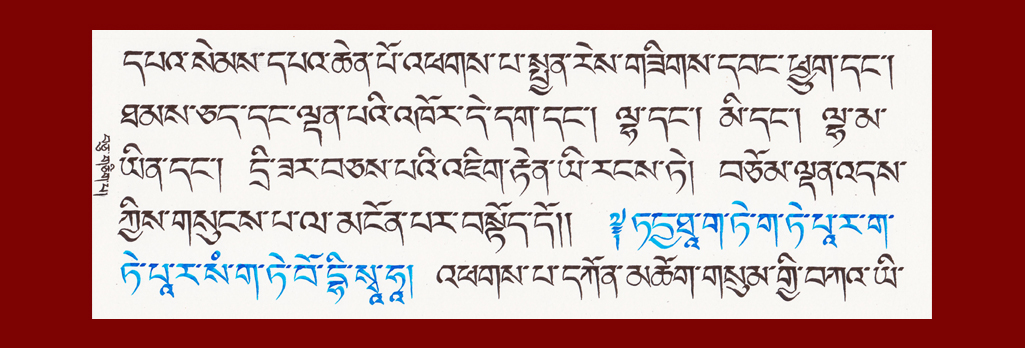 དཔའ་སེམས་དཔའ་ཆེན་པོ་འཕགས་པ་སྤྱན་རེས་གཟིགས་དབང་ཕྱུག་དང་།
ཐམས་ཅད་དང་ལྡན་པའི་འཁོར་དེ་དག་དང་། ལྷ་དང་། མི་དང་། ལྷ་མ་
ཡིན་དང་། དྲི་ཟར་བཅས་པའི་འཇིག་རྟེན་ཡི་རངས་ཏེ། བཅོམ་ལྡན་འདས་
ཀྱིས་གསུངས་པ་ལ་མངོན་པར་བསྟོད་དོ།། ༄ ཏདྱཐཱ་ག་ཏེ་ག་ཏེ་པཱ་ར་ག་
ཏེ་པཱ་ར་སཾ་ག་ཏེ་བོ་དྷི་སྭཱ་ཧཱ། འཕགས་པ་དཀོན་མཆོག་གསུམ་གྱི་བཀའ་ཡི་